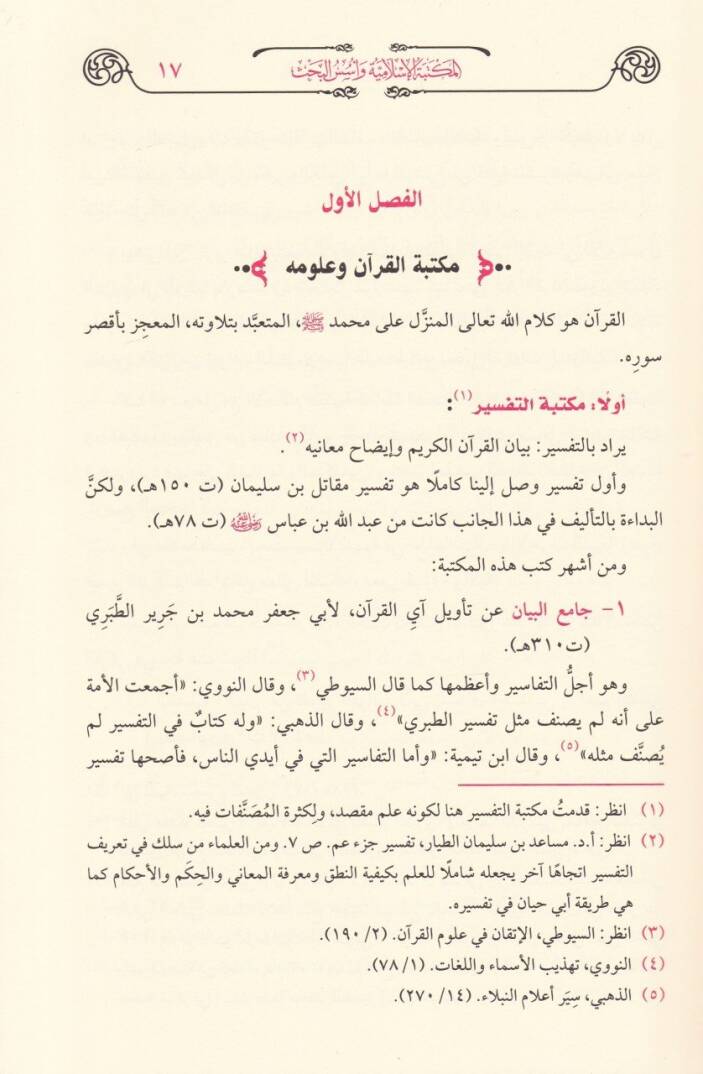 المكتبة الإسلامية وأسس البحث
١٧
الفصل الأول
مكتبة القرآن وعلومه
القرآن هو كلام الله تعالى المنزَّل على محمد ﷺ، المتعبَّد بتلاوته، المعجِز بأقصر
سورِه.
أولًا: مكتبة التفسير(١):
يراد بالتفسير: بيان القرآن الكريم وإيضاح معانيه(٢).
وأول تفسير وصل إلينا كاملًا هو تفسير مقاتل بن سليمان (ت ١٥٠هـ)، ولكنَّ
البداءة بالتأليف في هذا الجانب كانت من عبد الله بن عباس رضي الله عنه (ت ٧٨هـ).
ومن أشهر كتب هذه المكتبة:
١- جامع البيان عن تأويل آيِ القرآن، لأبي جعفر محمد بن جَرِير الطَّبَرِي
(ت٣١٠هـ).
وهو أجلُّ التفاسير وأعظمها كما قال السيوطي(٣)، وقال النووي: «أجمعت الأمة
على أنه لم يصنف مثل تفسير الطبري»(٤)، وقال الذهبي: «وله كتابٌ في التفسير لم
يُصنَّف مثله»(٥)، وقال ابن تيمية: «وأما التفاسير التي في أيدي الناس، فأصحها تفسير
(١) انظر: قدمتُ مكتبة التفسير هنا لكونه علم مقصد، ولِكثرة المُصَنَّفات فيه.
(٢) انظر: أ.د. مساعد بن سليمان الطيار، تفسير جزء عم. ص ٧. ومن العلماء من سلك في تعريف
التفسير اتجاهًا آخر يجعله شاملًا للعلم بكيفية النطق ومعرفة المعاني والحِكَم والأحكام كما
هي طريقة أبي حيان في تفسيره.
(٣) انظر: السيوطي، الإتقان في علوم القرآن. (٢/ ١٩٠).
(٤) النووي، تهذيب الأسماء واللغات. (١/ ٧٨).
(٥) الذهبي، سِيَر أعلام النبلاء. (١٤/ ٢٧٠).